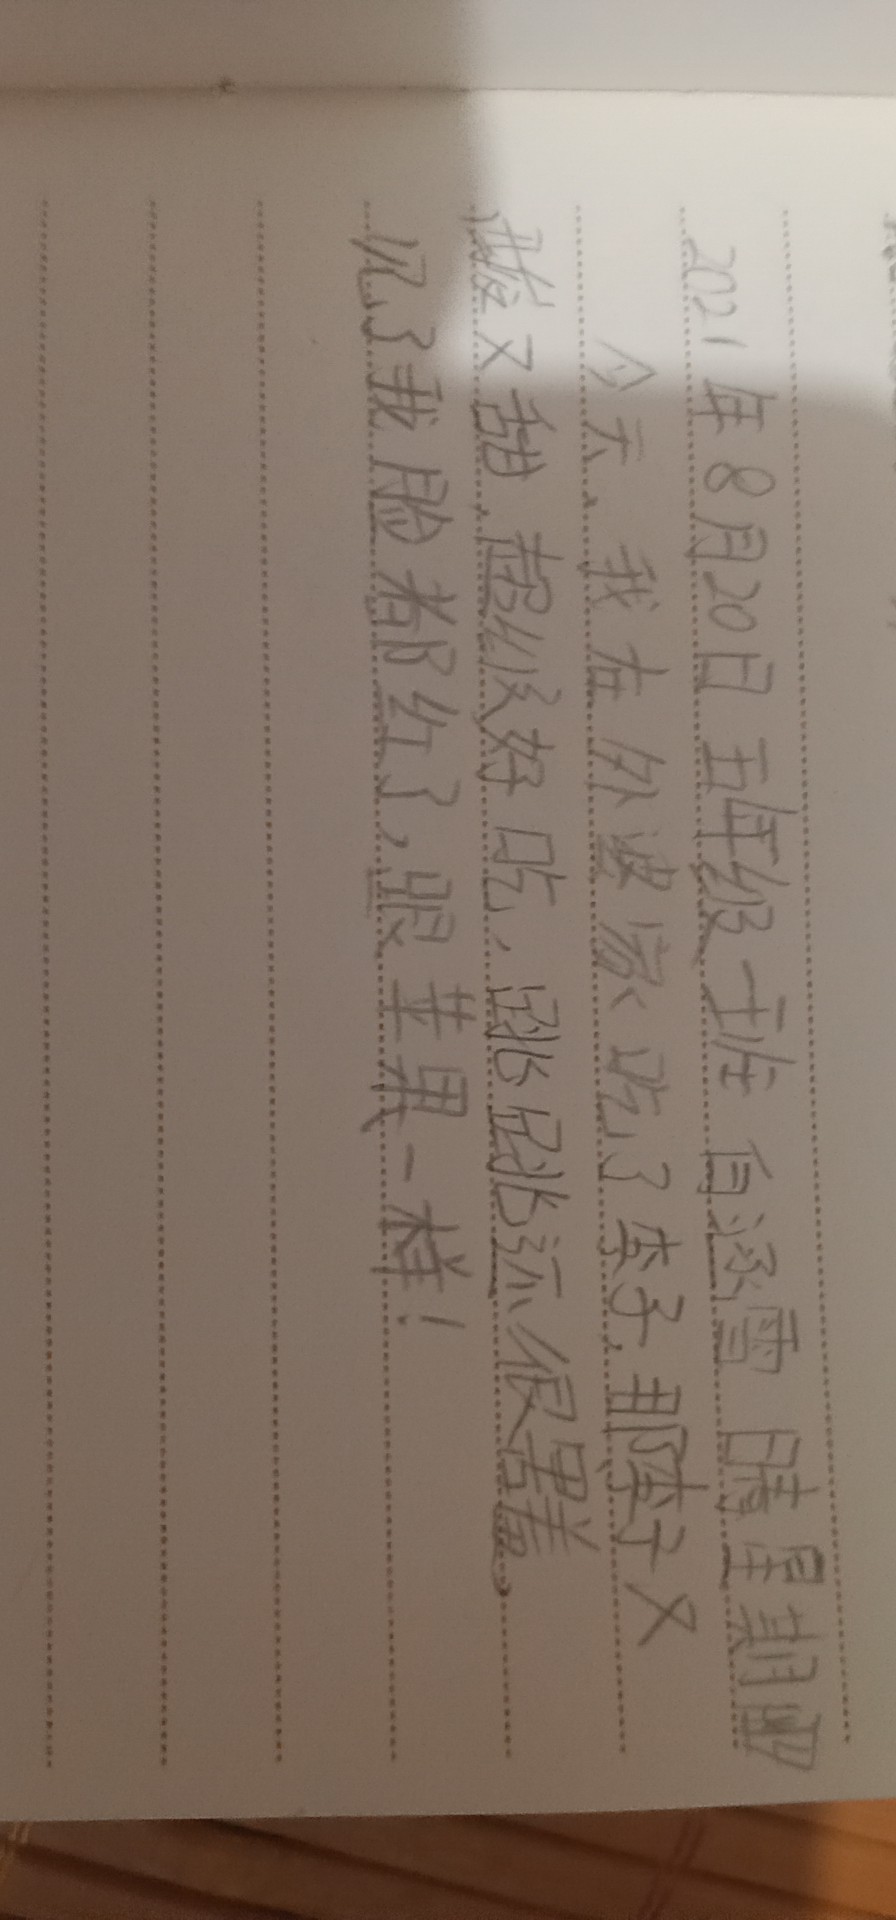 2021年8月20日 五年级一班 白涵雪 晴 星期四
今天、我在外婆家吃了李子,那李子又
酸又甜,超级好吃,跳跳还很害羞,
见了我脸都红了,跟苹果一样!